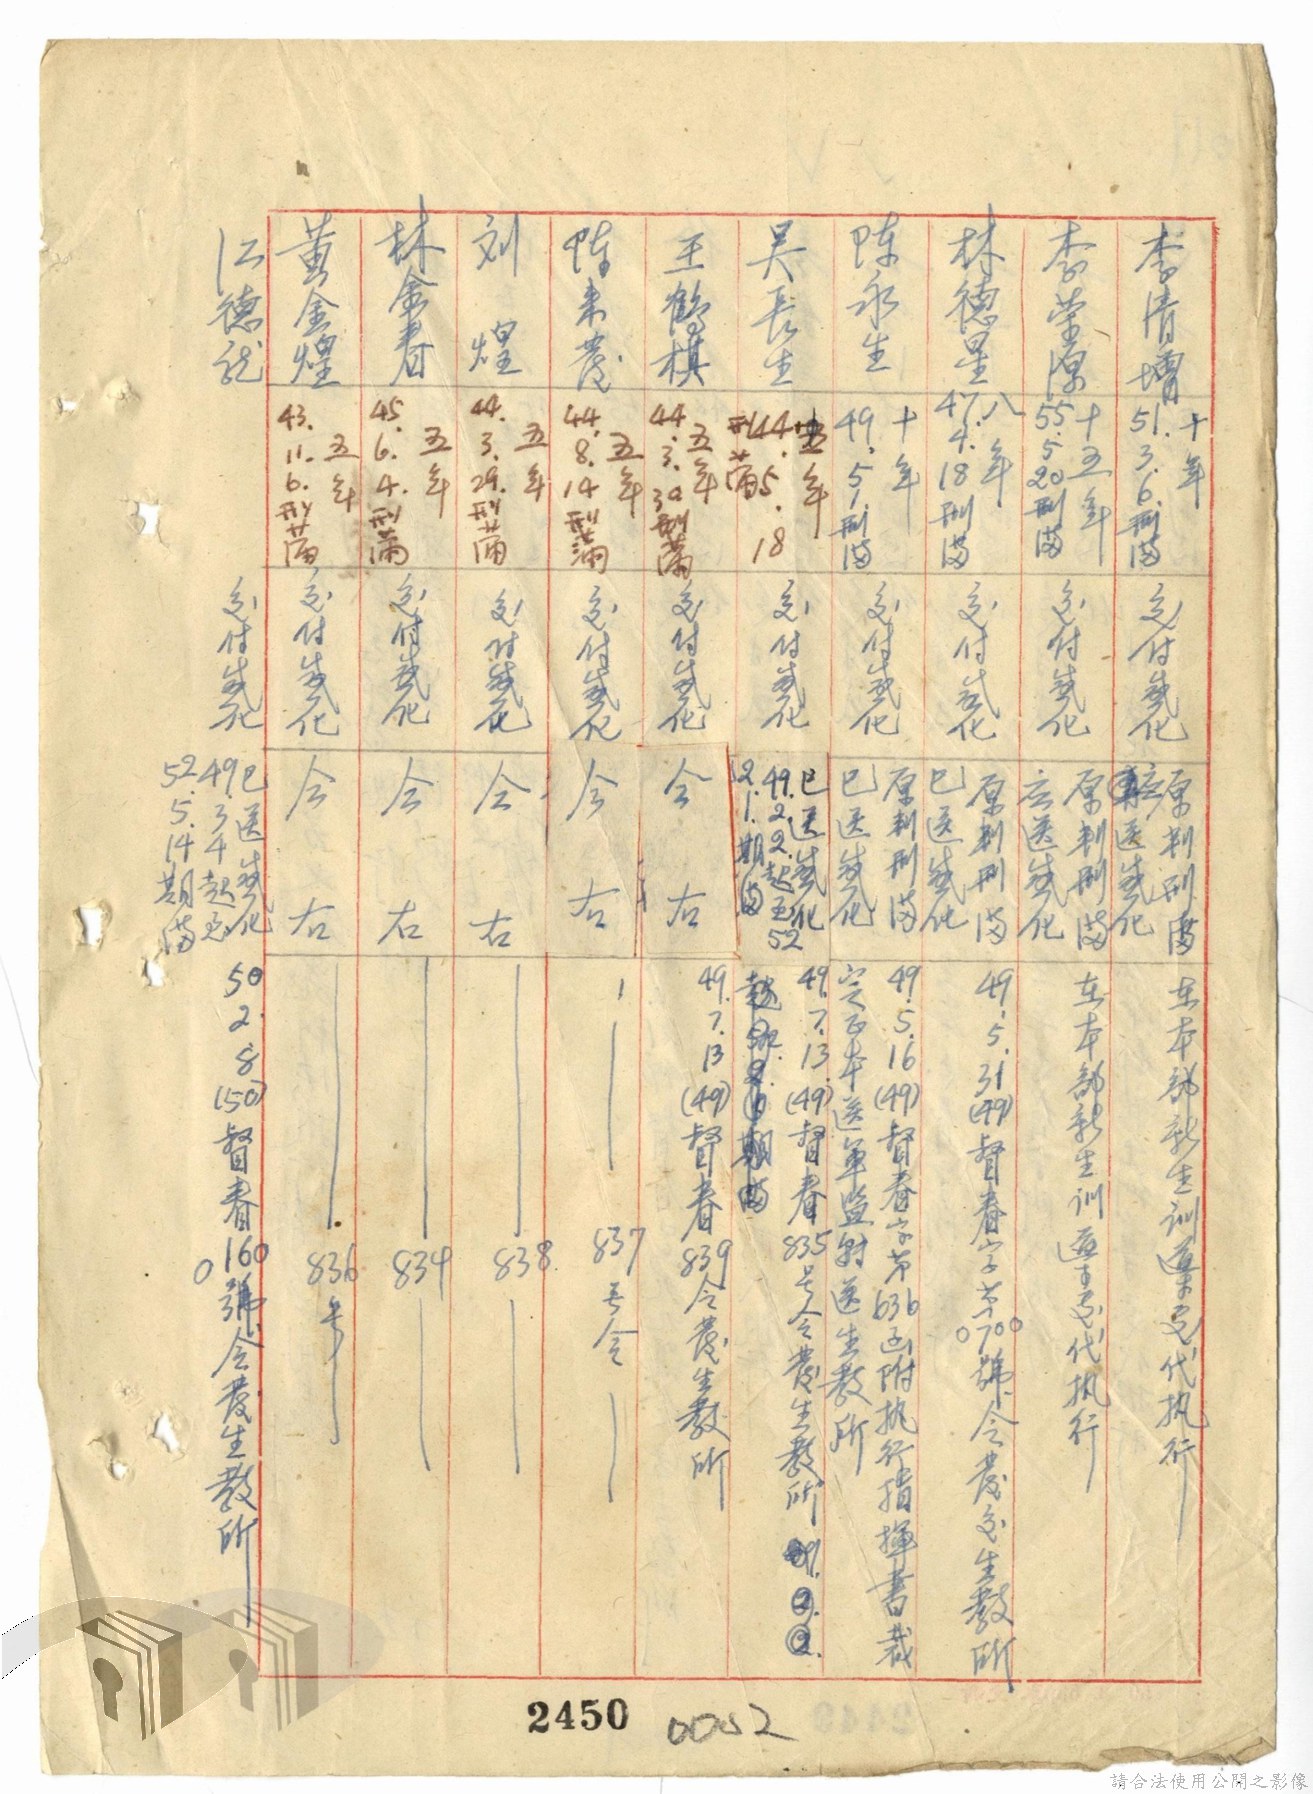 李清增
十年
51.3.6.刑满
交付感化
原判刑满
应送感化
在本部新生训導处代执行
李荣源
十五年
55.5.20刑满
交付感化
原判刑满
应送感化
在本部新生训導处代执行
林德星
八年
47.4.18刑满
交付感化
原判刑满
已送感化
49.5.31(49)督春字第0700號令發交生教所
陈永生
十年
49.5.1刑满
交付感化
原判刑满
已送感化
49.5.16(49)督春字第636函附执行指揮書裁
定正本送軍监射送生教所
吴長生
五年
44.5.18
刑满
交付感化
已送感化
49.2.2.起至52
2.1.期满
49.7.13.(49)督春835号令發生教所
王鶴棋
五年
44.3.30刑满
交付感化
仝右
49.7.13(49)督春839令發生教所
陈来發
五年
44.8.14刑滿
交付感化
仝右
837号令
刘煌
五年
44.3.29.刑满
交付感化
仝右
838
林金春
五年
45.6.4.刑满
交付感化
仝右
834
黄金煌
五年
43.11.6.刑满
交付感化
仝右
836号
江德龙
交付感化
已送感化
49.3.4起至
52.5.14期满
50.2.8(50)督春0160號令發生教所
2450
0052
請合法使用公開之影像